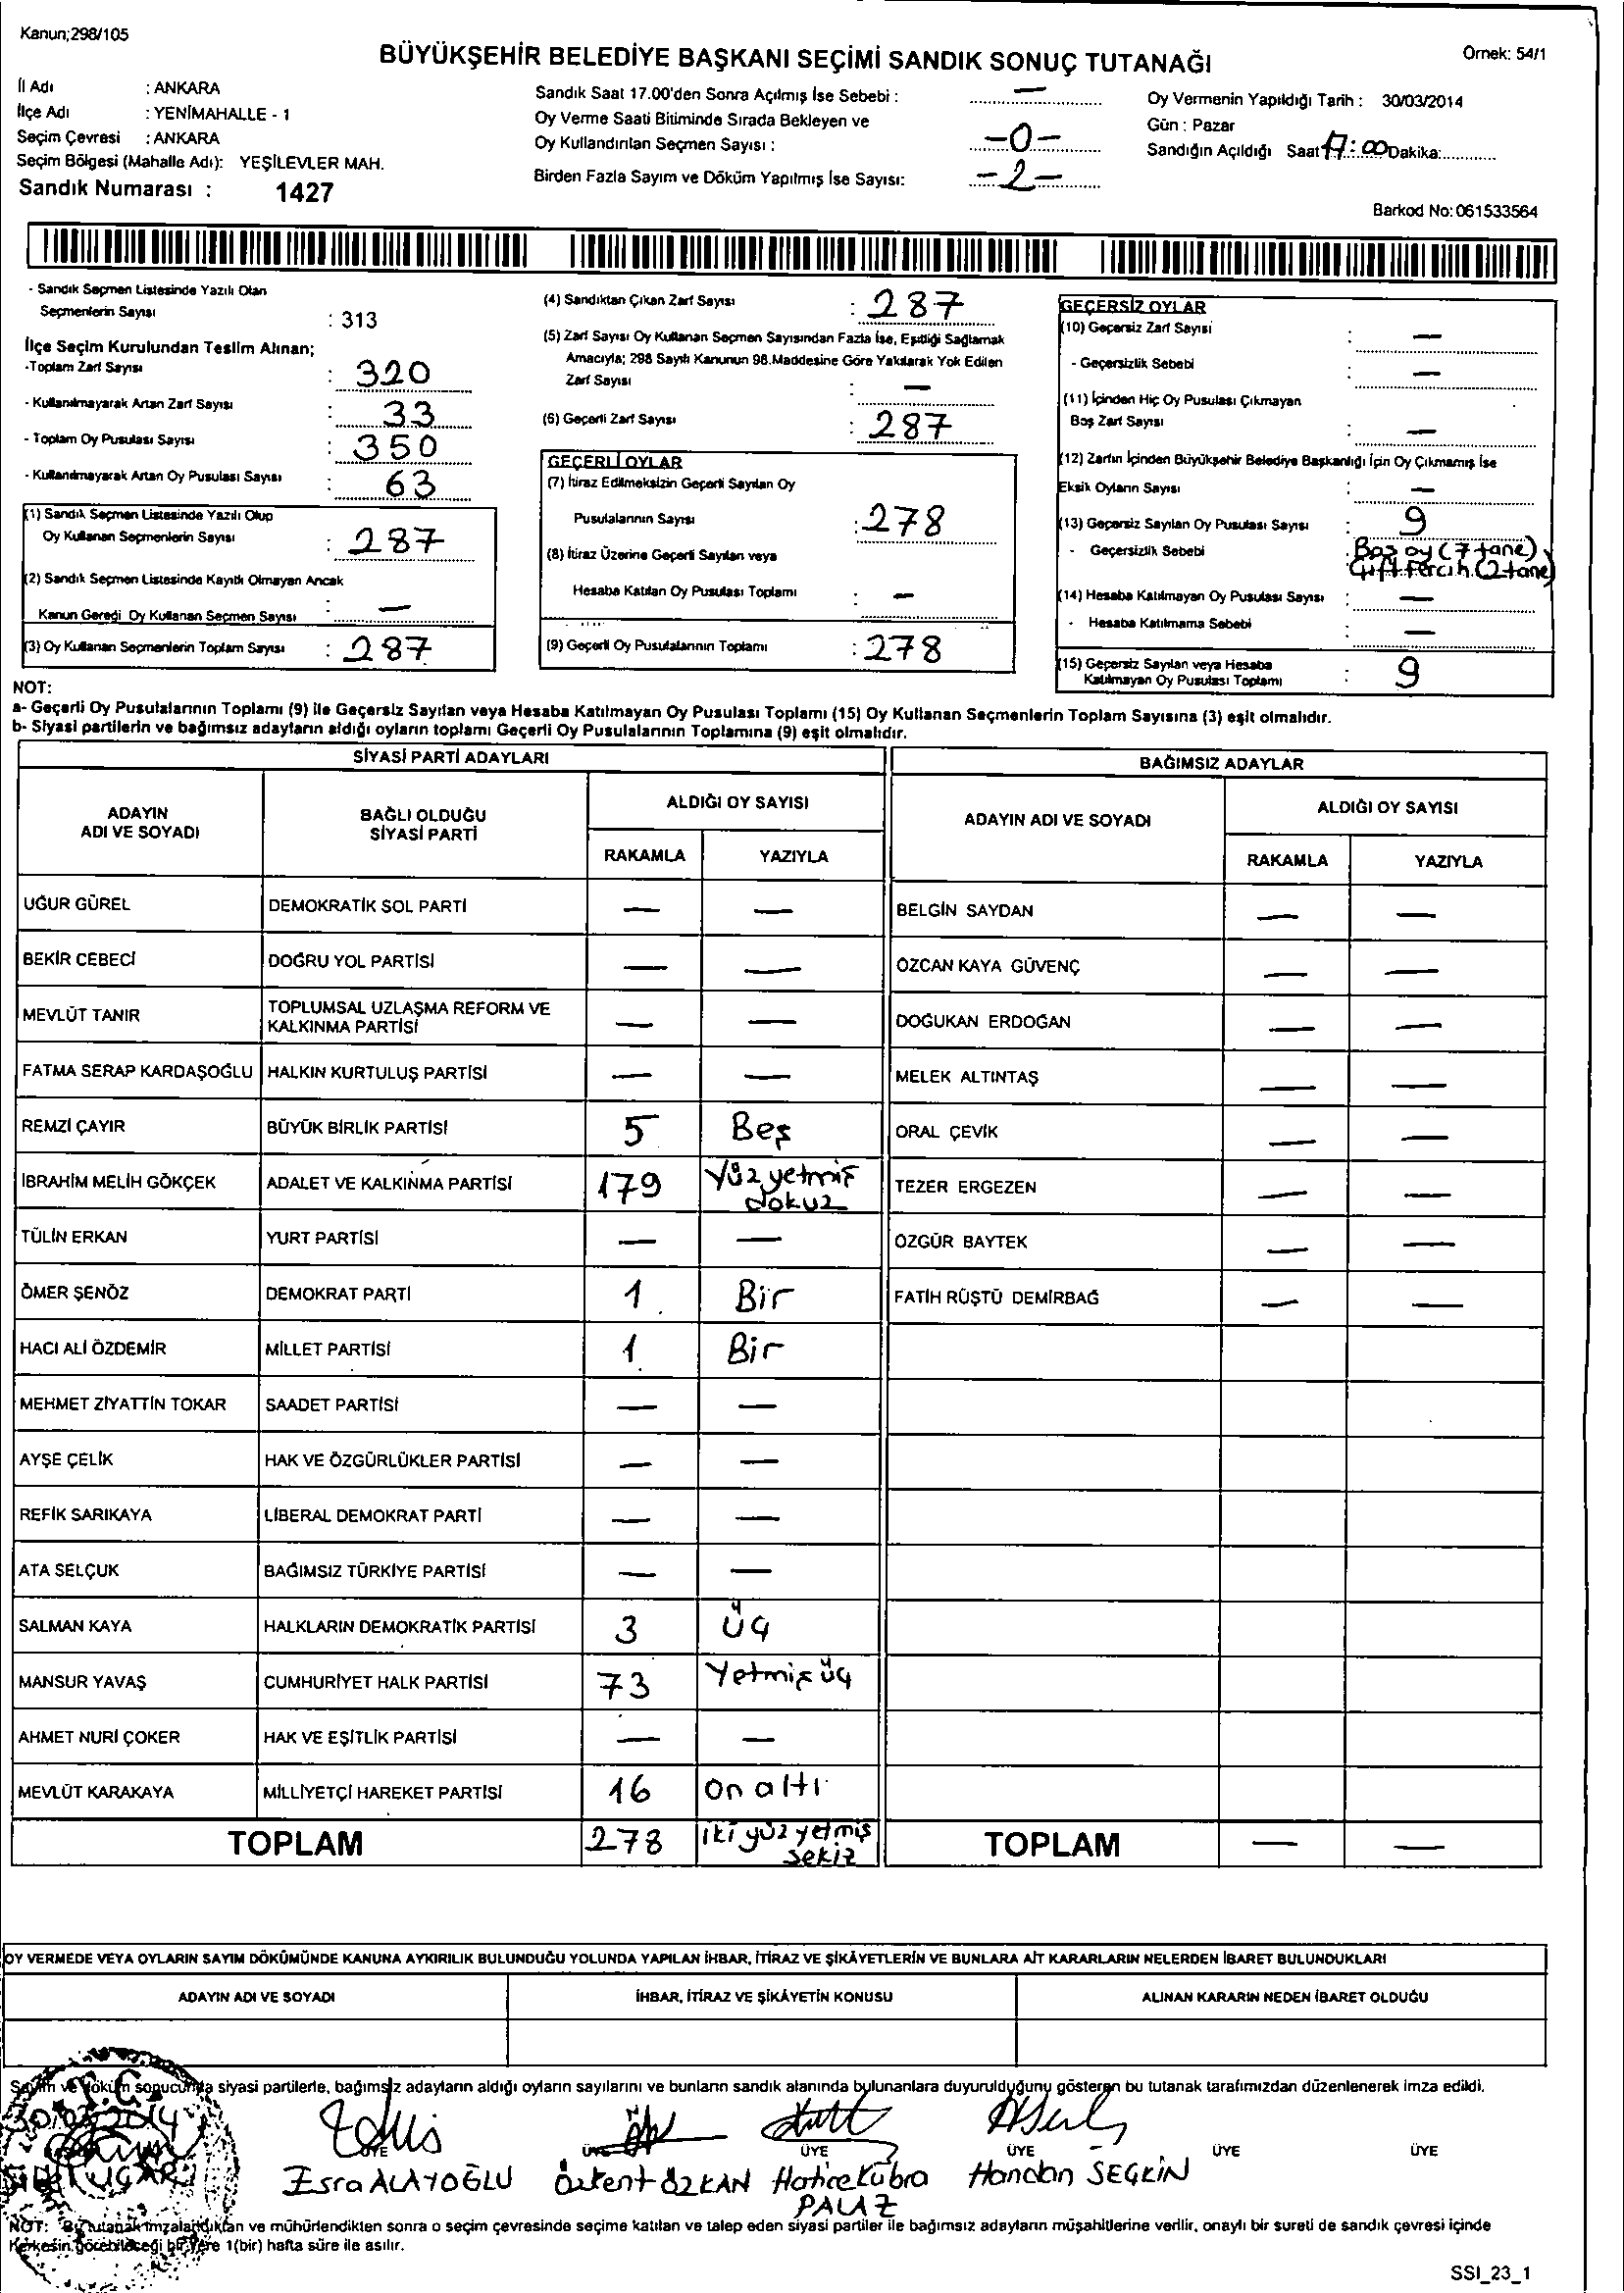 Kanun;298/105
BÜYÜKŞEHİR BELEDİYE BAŞKANI SEÇİMİ SANDIK SONUÇ TUTANAĞI
Örnek: 54/1
İl Adı : ANKARA
İlçe Adı : YENİMAHALLE - 1
Seçim Çevresi : ANKARA
Seçim Bölgesi (Mahalle Adı): YEŞİLEVLER MAH.
Sandık Numarası : 1427
Sandık Saat 17.00'den Sonra Açılmış İse Sebebi : —
Oy Verme Saati Bitiminde Sırada Bekleyen ve
Oy Kullandırılan Seçmen Sayısı : -0-
Birden Fazla Sayım ve Döküm Yapılmış İse Sayısı: -2-
Oy Vermenin Yapıldığı Tarih : 30/03/2014
Gün : Pazar
Sandığın Açıldığı Saat 17:00 Dakika:
Barkod No: 061533564
- Sandık Seçmen Listesinde Yazılı Olan
Seçmenlerin Sayısı : 313
İlçe Seçim Kurulundan Teslim Alınan;
-Toplam Zarf Sayısı : 320
- Kullanılmayarak Artan Zarf Sayısı : 33
- Toplam Oy Pusulası Sayısı : 350
- Kullanılmayarak Artan Oy Pusulası Sayısı : 63
(1) Sandık Seçmen Listesinde Yazılı Olup
Oy Kullanan Seçmenlerin Sayısı : 287
(2) Sandık Seçmen Listesinde Kayıtlı Olmayan Ancak
Kanun Gereği Oy Kullanan Seçmen Sayısı : —
(3) Oy Kullanan Seçmenlerin Toplam Sayısı : 287
(4) Sandıktan Çıkan Zarf Sayısı : 287
(5) Zarf Sayısı Oy Kullanan Seçmen Sayısından Fazla İse, Eşitliği Sağlamak
Amacıyla; 298 Sayılı Kanunun 98.Maddesine Göre Yakılarak Yok Edilen
Zarf Sayısı : —
(6) Geçerli Zarf Sayısı : 287
GEÇERLİ OYLAR
(7) İtiraz Edilmeksizin Geçerli Sayılan Oy
Pusulalarının Sayısı : 278
(8) İtiraz Üzerine Geçerli Sayılan veya
Hesaba Katılan Oy Pusulası Toplamı : —
(9) Geçerli Oy Pusulalarının Toplamı : 278
GEÇERSİZ OYLAR
(10) Geçersiz Zarf Sayısı : —
- Geçersizlik Sebebi : —
(11) İçinden Hiç Oy Pusulası Çıkmayan
Boş Zarf Sayısı : —
(12) Zarfın İçinden Büyükşehir Belediye Başkanlığı İçin Oy Çıkmamış İse
Eksik Oyların Sayısı : —
(13) Geçersiz Sayılan Oy Pusulası Sayısı : 9
- Geçersizlik Sebebi : Boş oy (7 tane)
Çift Tercih (2 tane)
(14) Hesaba Katılmayan Oy Pusulası Sayısı : —
- Hesaba Katılmama Sebebi : —
(15) Geçersiz Sayılan veya Hesaba
Katılmayan Oy Pusulası Toplamı : 9
NOT:
a- Geçerli Oy Pusulalarının Toplamı (9) ile Geçersiz Sayılan veya Hesaba Katılmayan Oy Pusulası Toplamı (15) Oy Kullanan Seçmenlerin Toplam Sayısına (3) eşit olmalıdır.
b- Siyasi partilerin ve bağımsız adayların aldığı oyların toplamı Geçerli Oy Pusulalarının Toplamına (9) eşit olmalıdır.
SİYASİ PARTİ ADAYLARI
ADAYIN ADI VE SOYADI BAĞLI OLDUĞU SİYASİ PARTİ ALDIĞI OY SAYISI
RAKAMLA YAZIYLA
UĞUR GÜREL DEMOKRATİK SOL PARTİ — —
BEKİR CEBECİ DOĞRU YOL PARTİSİ — —
MEVLÜT TANIR TOPLUMSAL UZLAŞMA REFORM VE KALKINMA PARTİSİ — —
FATMA SERAP KARDAŞOĞLU HALKIN KURTULUŞ PARTİSİ — —
REMZİ ÇAYIR BÜYÜK BİRLİK PARTİSİ 5 Beş
İBRAHİM MELİH GÖKÇEK ADALET VE KALKINMA PARTİSİ 179 Yüz yetmiş dokuz
TÜLİN ERKAN YURT PARTİSİ — —
ÖMER ŞENÖZ DEMOKRAT PARTİ 1 Bir
HACI ALİ ÖZDEMİR MİLLET PARTİSİ 1 Bir
MEHMET ZİYATTİN TOKAR SAADET PARTİSİ — —
AYŞE ÇELİK HAK VE ÖZGÜRLÜKLER PARTİSİ — —
REFİK SARIKAYA LİBERAL DEMOKRAT PARTİ — —
ATA SELÇUK BAĞIMSIZ TÜRKİYE PARTİSİ — —
SALMAN KAYA HALKLARIN DEMOKRATİK PARTİSİ 3 üç
MANSUR YAVAŞ CUMHURİYET HALK PARTİSİ 73 Yetmiş üç
AHMET NURİ ÇOKER HAK VE EŞİTLİK PARTİSİ — —
MEVLÜT KARAKAYA MİLLİYETÇİ HAREKET PARTİSİ 16 on altı
TOPLAM 278 iki yüz yetmiş sekiz
BAĞIMSIZ ADAYLAR
ADAYIN ADI VE SOYADI ALDIĞI OY SAYISI
RAKAMLA YAZIYLA
BELGİN SAYDAN — —
ÖZCAN KAYA GÜVENÇ — —
DOĞUKAN ERDOĞAN — —
MELEK ALTINTAŞ — —
ORAL ÇEVİK — —
TEZER ERGEZEN — —
ÖZGÜR BAYTEK — —
FATİH RÜŞTÜ DEMİRBAĞ — —
TOPLAM — —
OY VERMEDE VEYA OYLARIN SAYIM DÖKÜMÜNDE KANUNA AYKIRILIK BULUNDUĞU YOLUNDA YAPILAN İHBAR, İTİRAZ VE ŞİKÂYETLERİN VE BUNLARA AİT KARARLARIN NELERDEN İBARET BULUNDUKLARI
ADAYIN ADI VE SOYADI İHBAR, İTİRAZ VE ŞİKÂYETİN KONUSU ALINAN KARARIN NEDEN İBARET OLDUĞU
Sayım ve döküm sonucunda siyasi partilerle, bağımsız adayların aldığı oyların sayılarını ve bunların sandık alanında bulunanlara duyurulduğunu gösteren bu tutanak tarafımızdan düzenlenerek imza edildi.
T.C.
30/03/2014
ÜYE ÜYE ÜYE ÜYE ÜYE ÜYE
Esra ALAYOĞLU Özkent ÖZKAN Hatice Kübra PALAZ Handan SEÇKİN
NOT: Bu tutanak imzalandıktan ve mühürlendikten sonra o seçim çevresinde seçime katılan ve talep eden siyasi partiler ile bağımsız adayların müşahitlerine verilir, onaylı bir sureti de sandık çevresi içinde
herkesin görebileceği bir yere 1(bir) hafta süre ile asılır.
SSI_23_1